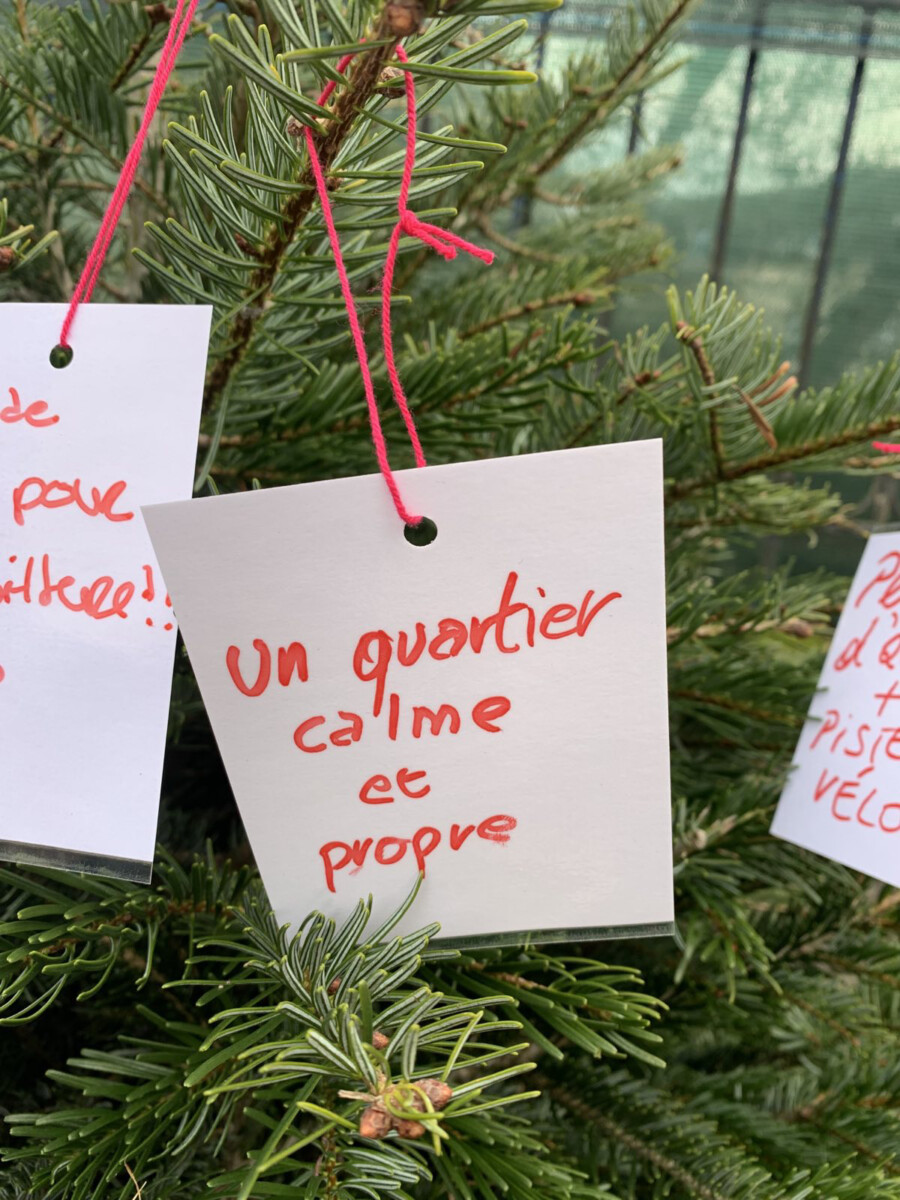 de
pour
Un quartier
calme
et
propre
+
PISTE
VÉLO